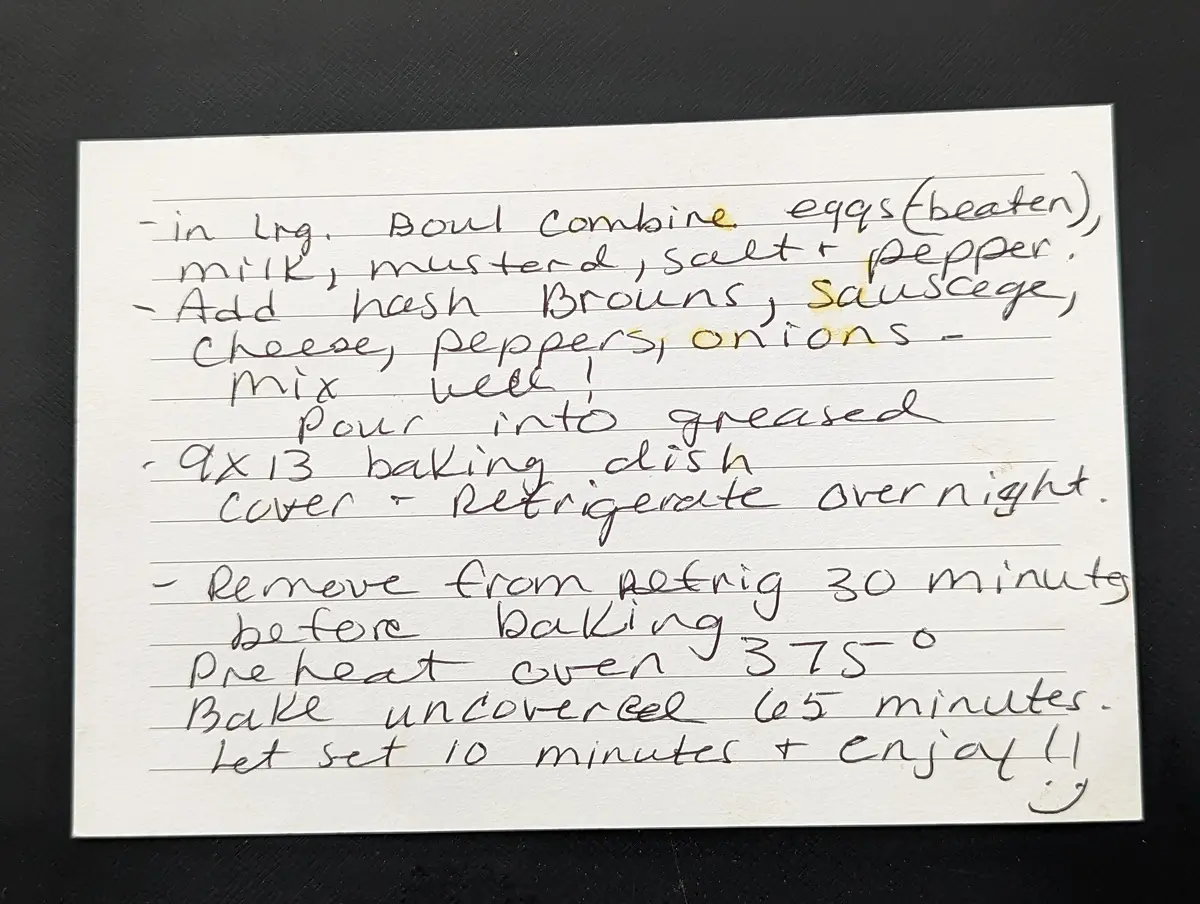 - in Lrg. Bowl combine eggs (beaten),
milk, musterd, salt + pepper.
- Add hash Browns, sauscege,
cheese, peppers, onions -
mix well!
Pour into greased
- 9x13 baking dish
cover - Refrigerate overnight.
- Remove from refrig 30 minutes
before baking
Preheat oven 375°
Bake uncovered 65 minutes.
Let set 10 minutes + enjoy!!
:)